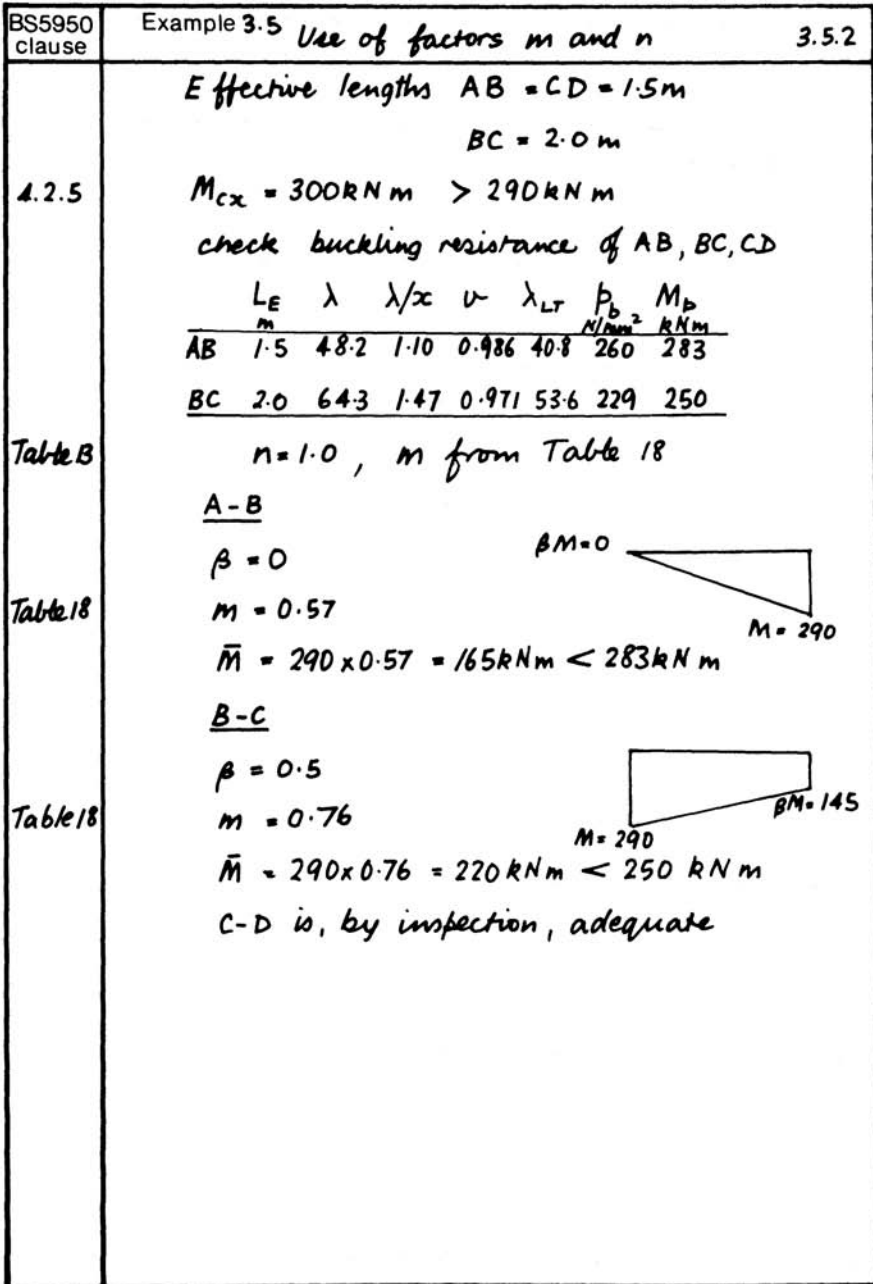 BS5950 clause
Example 3.5 Use of factors m and n 3.5.2
Effective lengths AB = CD = 1.5m
BC = 2.0 m
4.2.5 Mcx = 300kNm > 290kNm
check buckling resistance of AB, BC, CD
LE λ λ/x v λLT pb Mb
m N/mm² kNm
AB 1.5 48.2 1.10 0.986 40.8 260 283
BC 2.0 64.3 1.47 0.971 53.6 229 250
Table B n=1.0, m from Table 18
A-B
β = 0 βM=0
Table 18 m = 0.57
M= 290
M̄ = 290 x 0.57 = 165kNm < 283kNm
B-C
β = 0.5
βM=145
Table 18 m = 0.76
M= 290
M̄ = 290x0.76 = 220 kNm < 250 kNm
C-D is, by inspection, adequate